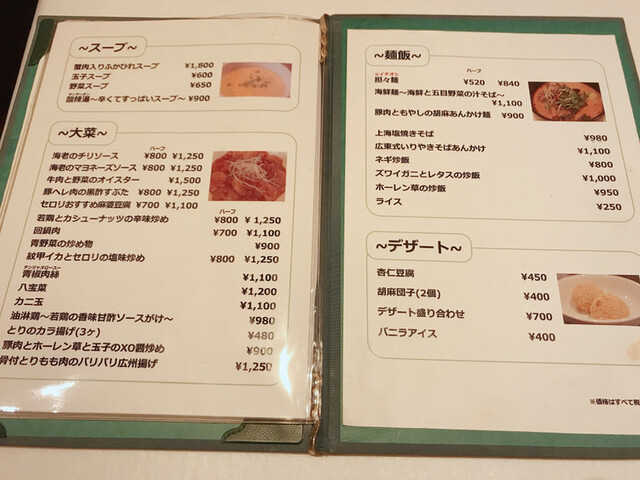 ~スープ~
蟹肉入りふかひれスープ ¥1,800
玉子スープ ¥600
野菜スープ ¥650
酸辣湯~辛くてすっぱいスープ~ ¥900
~大菜~
ハーフ
海老のチリソース ¥800 ¥1,250
海老のマヨネーズソース ¥800 ¥1,250
牛肉と野菜のオイスター ¥1,500
豚ヘレ肉の黒酢すぶた ¥800 ¥1,250
セロリおすすめ麻婆豆腐 ¥700 ¥1,100
ハーフ
若鶏とカシューナッツの辛味炒め ¥800 ¥1,250
回鍋肉 ¥700 ¥1,100
青野菜の炒め物 ¥900
紋甲イカとセロリの塩味炒め ¥800 ¥1,250
チンジャオロースー
青椒肉絲 ¥1,100
八宝菜 ¥1,200
カニ玉 ¥1,100
油淋鶏~若鶏の香味甘酢ソースがけ~ ¥980
とりのカラ揚げ(3ヶ) ¥480
豚肉とホーレン草と玉子のXO醤炒め ¥900
骨付とりもも肉のパリパリ広州揚げ ¥1,250
~麺飯~
ハーフ
イチオシ
担々麺 ¥520 ¥840
海鮮麺~海鮮と五目野菜の汁そば~
¥1,100
豚肉ともやしの胡麻あんかけ麺 ¥900
上海塩焼きそば ¥980
広東式いりやきそばあんかけ ¥1,100
ネギ炒飯 ¥800
ズワイガニとレタスの炒飯 ¥1,000
ホーレン草の炒飯 ¥950
ライス ¥250
~デザート~
杏仁豆腐 ¥450
胡麻団子(2個) ¥400
デザート盛り合わせ ¥700
バニラアイス ¥400
※価格はすべて税